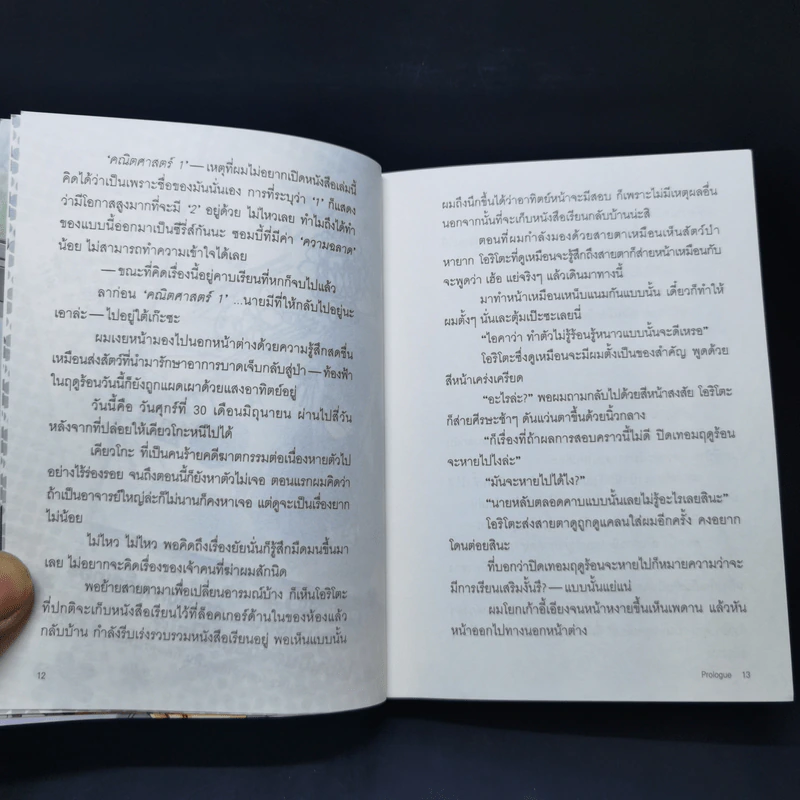 'คณิตศาสตร์ 1' — เหตุที่ผมไม่อยากเปิดหนังสือเล่มนี้
คิดได้ว่าเป็นเพราะชื่อของมันนั่นเอง การที่ระบุว่า '1' ก็แสดง
ว่ามีโอกาสสูงมากที่จะมี '2' อยู่ด้วย ไม่ไหวเลย ทำไมถึงได้ทำ
ของแบบนี้ออกมาเป็นซีรี่ส์กันนะ ซอมบี้ที่มีค่า 'ความฉลาด'
น้อย ไม่สามารถทำความเข้าใจได้เลย
— ขณะที่คิดเรื่องนี้อยู่คาบเรียนที่หกก็จบไปแล้ว
ลาก่อน 'คณิตศาสตร์ 1' ...นายมีที่ให้กลับไปอยู่นะ
เอาล่ะ — ไปอยู่ใต้เก๊ะซะ
ผมเงยหน้ามองไปนอกหน้าต่างด้วยความรู้สึกสดชื่น
เหมือนส่งสัตว์ที่นำมารักษาอาการบาดเจ็บกลับสู่ป่า — ท้องฟ้า
ในฤดูร้อนวันนี้ก็ยังถูกแผดเผาด้วยแสงอาทิตย์อยู่
วันนี้คือ วันศุกร์ที่ 30 เดือนมิถุนายน ผ่านไปสี่วัน
หลังจากที่ปล่อยให้เคียวโกะหนีไปได้
เคียวโกะ ที่เป็นคนร้ายคดีฆาตกรรมต่อเนื่องหายตัวไป
อย่างไร้ร่องรอย จนถึงตอนนี้ก็ยังหาตัวไม่เจอ ตอนแรกผมคิดว่า
ถ้าเป็นอาจารย์ใหญ่ล่ะก็ไม่นานก็คงหาเจอ แต่ดูจะเป็นเรื่องยาก
ไม่น้อย
ไม่ไหว ไม่ไหว พอคิดถึงเรื่องยัยนั่นก็รู้สึกมืดมนขึ้นมา
เลย ไม่อยากจะคิดเรื่องของเจ้าคนที่ฆ่าผมสักนิด
พอย้ายสายตามาเพื่อเปลี่ยนอารมณ์บ้าง ก็เห็นโอริโตะ
ที่ปกติจะเก็บหนังสือเรียนไว้ที่ล็อคเกอร์ด้านในของห้องแล้ว
กลับบ้าน กำลังรีบเร่งรวบรวมหนังสือเรียนอยู่ พอเห็นแบบนั้น
12
ผมถึงนึกขึ้นได้ว่าอาทิตย์หน้าจะมีสอบ ก็เพราะไม่มีเหตุผลอื่น
นอกจากนั้นที่จะเก็บหนังสือเรียนกลับบ้านน่ะสิ
ตอนที่ผมกำลังมองด้วยสายตาเหมือนเห็นสัตว์ป่า
หายาก โอริโตะที่ดูเหมือนจะรู้สึกถึงสายตาก็ส่ายหน้าเหมือนกับ
จะพูดว่า เฮ้อ แย่จริงๆ แล้วเดินมาทางนี้
มาทำหน้าเหมือนเหน็บแนมกันแบบนั้น เดี๋ยวก็ทำให้
ผมตั้งๆ นั่นเละตุ้มเป๊ะซะเลยนี่
"ไอคาว่า ทำตัวไม่รู้ร้อนรู้หนาวแบบนั้นจะดีเหรอ"
โอริโตะซึ่งดูเหมือนจะมีผมตั้งเป็นของสำคัญ พูดด้วย
สีหน้าเคร่งเครียด
"อะไรล่ะ?" พอผมถามกลับไปด้วยสีหน้าสงสัย โอริโตะ
ก็ส่ายศีรษะช้าๆ ดันแว่นตาขึ้นด้วยนิ้วกลาง
"ก็เรื่องที่ถ้าผลการสอบคราวนี้ไม่ดี ปิดเทอมฤดูร้อน
จะหายไปไงล่ะ"
"มันจะหายไปได้ไง?"
"นายหลับตลอดคาบแบบนั้นเลยไม่รู้อะไรเลยสินะ"
โอริโตะส่งสายตาดูถูกดูแคลนใส่ผมอีกครั้ง คงอยาก
โดนต่อยสินะ
ที่บอกว่าปิดเทอมฤดูร้อนจะหายไปก็หมายความว่าจะ
มีการเรียนเสริมงั้นรึ? — แบบนั้นแย่แน่
ผมโยกเก้าอี้เอียงจนหน้าหงายขึ้นเห็นเพดาน แล้วหัน
หน้าออกไปทางนอกหน้าต่าง
Prologue 13